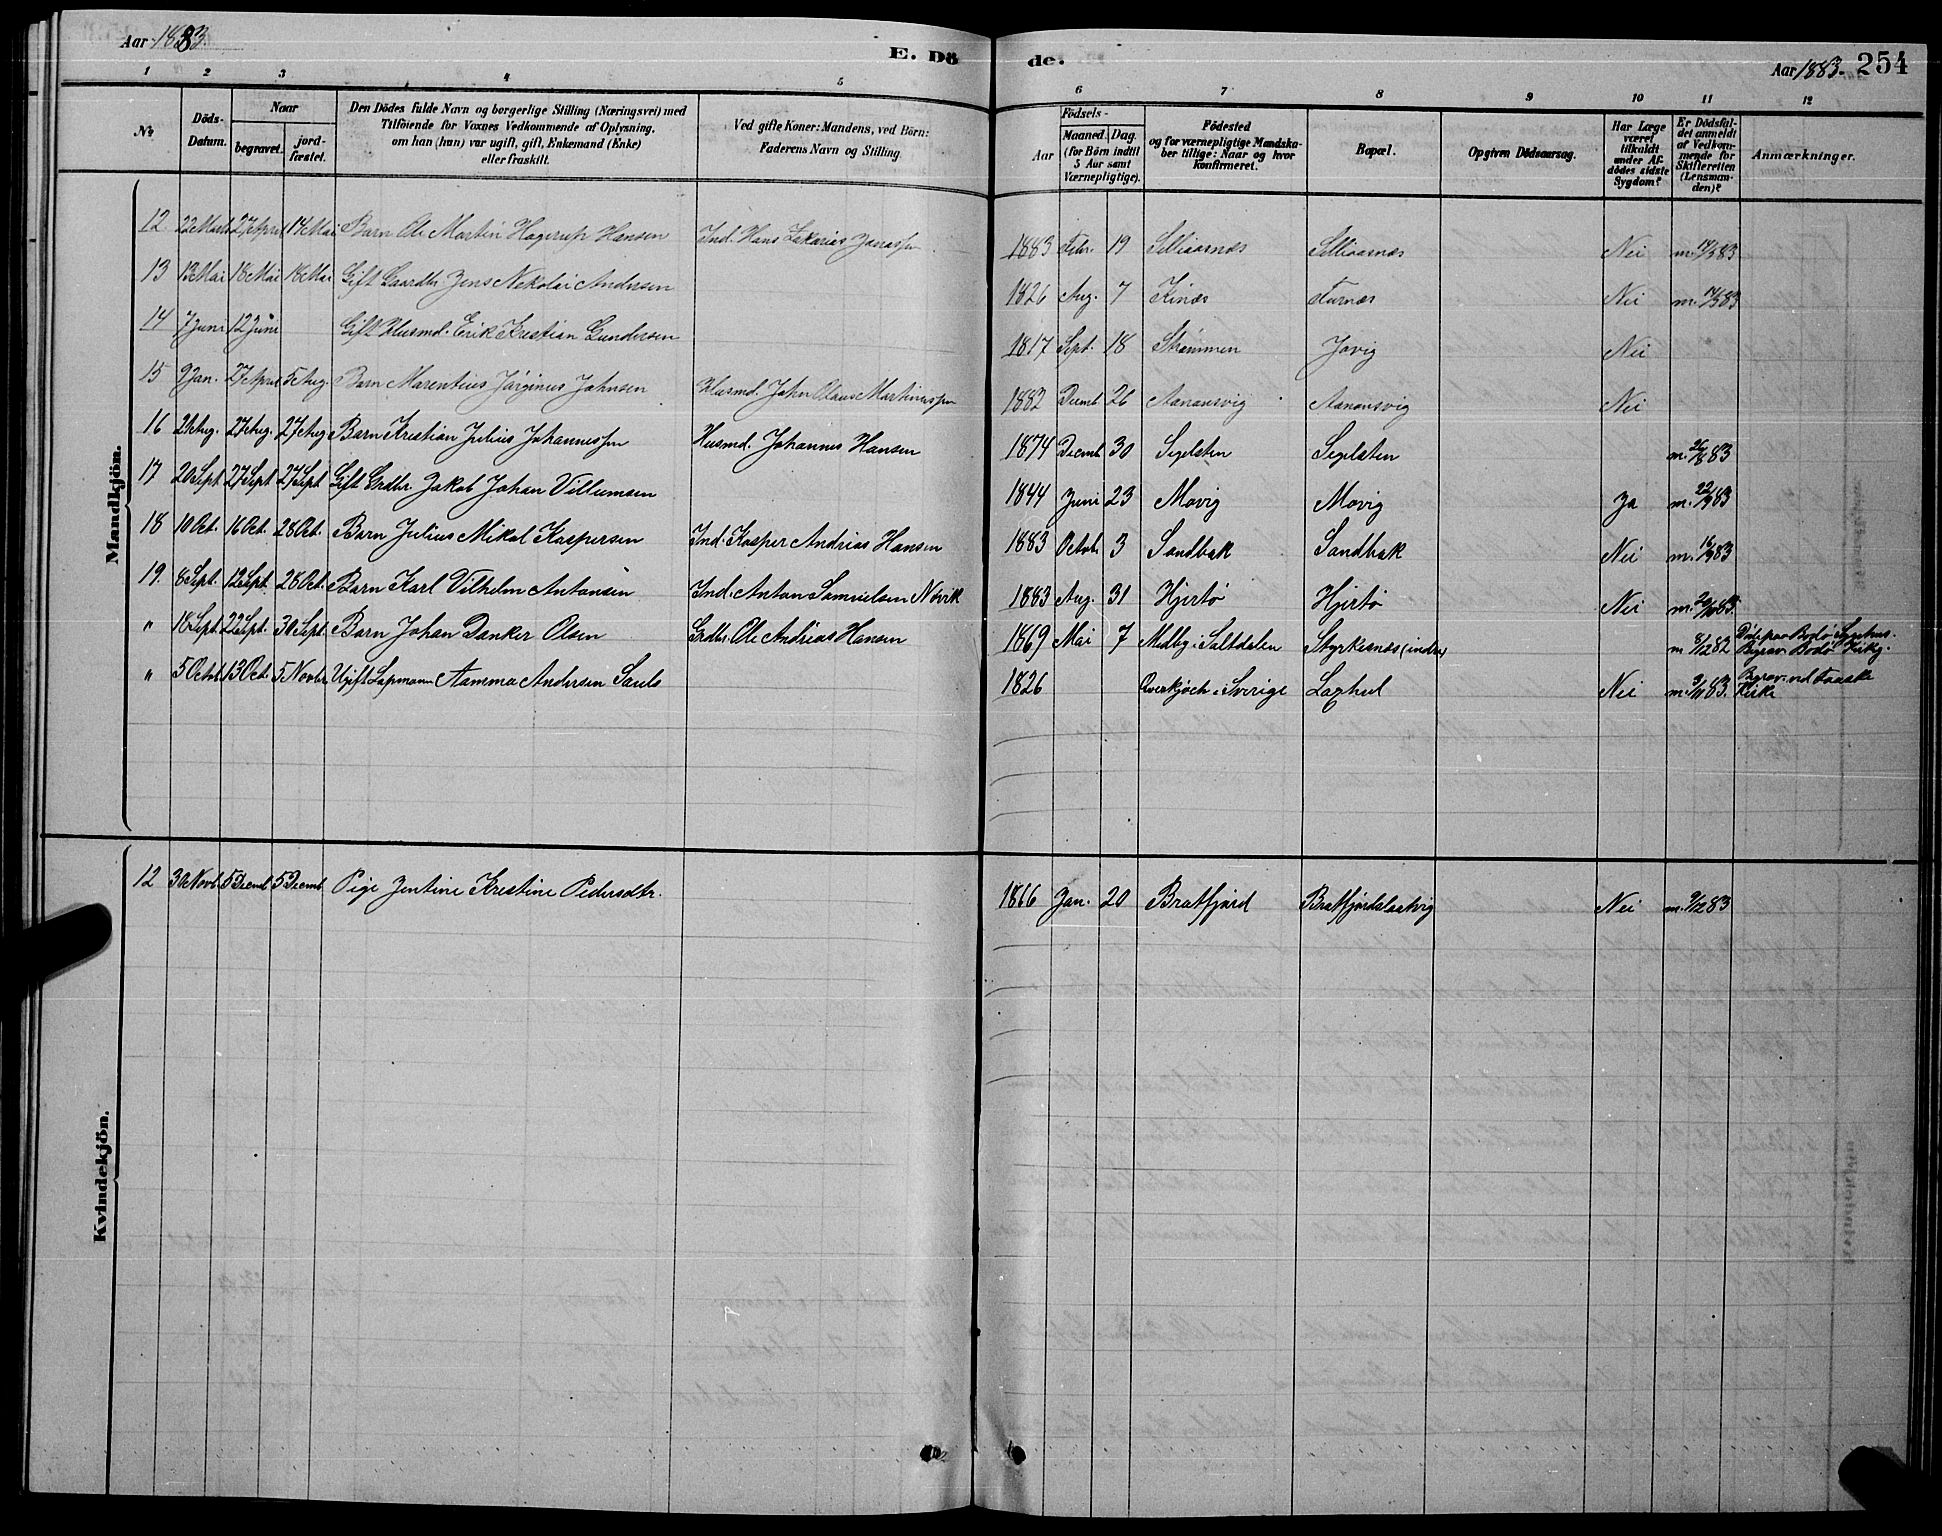 Aar 1883. E. Dö de. Aar 1883. 254
1 2 3 4 5 6 7 8 9 10 11 12
No
Döds-Datum.
Naar
begravet.
jord-fæstet.
Den Dödes fulde Navn og borgerlige Stilling (Næringsvei) med Tilföiende for Voxnes Vedkommende af Oplysning, om han (hun) var ugift, gift, Enkemand (Enke) eller fraskilt.
Ved gifte Koner: Mandens, ved Börn: Faderens Navn og Stilling.
Födsels-
Aar
Maaned. Dag.
(for Börn indtil 5 Aar samt Værnepligtige).
Födested og for værnepligtige Mandskaber tillige: Naar og hvor konfirmeret.
Bopæl.
Opgiven Dödsaarsag.
Har Læge været tilkaldt under Afdödes sidste Sygdom?
Er Dödsfaldet anmeldt af Vedkommende for Skifteretten (Lensmanden)?
Anmærkninger.
Mandkjön.
12 22 Marts 27 April 14 Mai Barn Ole Martin Hagerup Hansen Ind. Hans Zakarias 1883 Febr. 19 Selliaasnæs Selliaasnæs Nei
13 13 Mai 18 Mai 18 Mai Gift Gaardbr. Jens Nekolai Andersen 1826 Aug. 7 Kines Furnæs Nei
14 7 Juni 12 Juni Gift Husmd. Erik Kristian Gundersen 1817 Sept. 18 Strømmen Jøvig Nei
15 9 Jan. 27 April 5 Aug. Barn Marentius Jørginus Johnsen Husmd. John Olaus Martinussen 1882 Decmb. 26 Aanansvig Aanansvig Nei
16 21 Aug. 27 Aug. 27 Aug Barn Kristian Julius Johannessen Husmd. Johannes Hansen 1874 Decmb. 30 Segelsten Segelsten m. 26/8 83
17 20 Sept. 27 Sept 27 Sept Gift Grdbr. Jakob Johan Villumsen 1844 Juni 23 Movig Movig Ja m. 22/9 83
18 10 Oct. 16 Oct. 28 Oct. Barn Julius Mikal Kaspersen Ind. Kasper Andrias Hansen 1883 Octob. 3 Sandbak Sandbak Nei
19. 8 Sept. 12 Sept. 28 Oct. Barn Karl Vilhelm Antonsen Ind. Anton Samuelsen Nøvik 1883 Aug. 31 Hjertø Hjertø Nei
" 18 Sept. 22 Sept. 30 Sept. Barn Johan Danker Olsen Grdbr. Ole Andrias Hansen 1869 Mai 7 Medby i Saltdalen Styrkesnæs (indre) m 8/12 82 Død paa Bodø Sygehus. Begrav. Bodø Kirkg.
" 5 Octob. 13 Oct. 5 Novbr. Ugift Lapmann Aamma Andersen Sarels 1826 Qverkjoch i Sverige Laxhul Nei m. 3/11 83. Begrav. ved Fauske Kirke
Kvindekjön.
12 30 Novb. 5 Decmb 5 Decmb Pige Jentine Kristine Pedersdtr. 1866 Jan. 20 Bratfjord Bratfjordslaatvig Nei m. 9/12 83